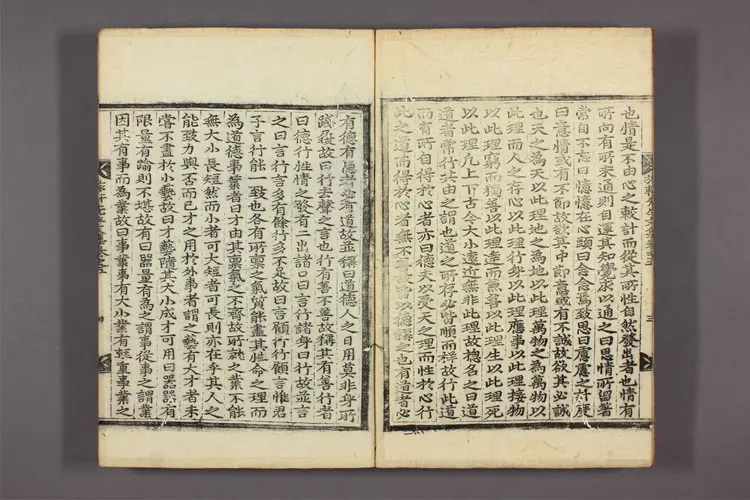 也情是不由心之較計而從其所性自然發出者也情有
所向有所未通則自運其知覺求以通之曰思情所留著
常自不忘曰憶憶在心頭曰念念焉致思曰慮慮之計度
曰意情或有不節故欲其中節意或有不誠故欲其必誠
也天之為天以此理地之為地以此理萬物之為萬物以
此理而人之存心以此理行身以此理應事以此理接物
以此理窮而獨善以此理達而兼善以此理生以此理死
以此理凡上下古今大小遠近無非此理故揔名之曰道
道者常行共由之謂也道之所存必皆順而故行此道
而有所自得於心者亦曰德夫以受天之理而性於心行
此之道而得於心者無不善以德稱之也有道者必
有德有德者必有道故並稱曰道德人之日用莫非身所
踐發故曰行去聲之言也行有善不善故稱其有善行者
曰德行性情之發有二出諸口曰言行諸身曰行故並言
之曰言行言多有餘行多不足故曰言顧行行顧言惟君
子言行能一致也各有所禀之氣質能盡其性命之理而
為道德事業者曰才由其禀氣之不齊故所就之業不能
無大小長短然而小者可大短者可長則亦在乎其人之
能致力與否而已才之用於外事者謂之藝有大才者未
嘗不盡於小藝故曰才藝隨其大小成才可用曰器器有
限量有踰則不堪故有曰器量有為之謂事從事之謂業
因其有事而為業故曰事業事有大小業有輕重事業之